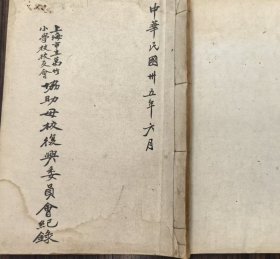 中華民國卅五年六月
上海市立萬竹
小學校校友會
協助母校復興委員會紀錄